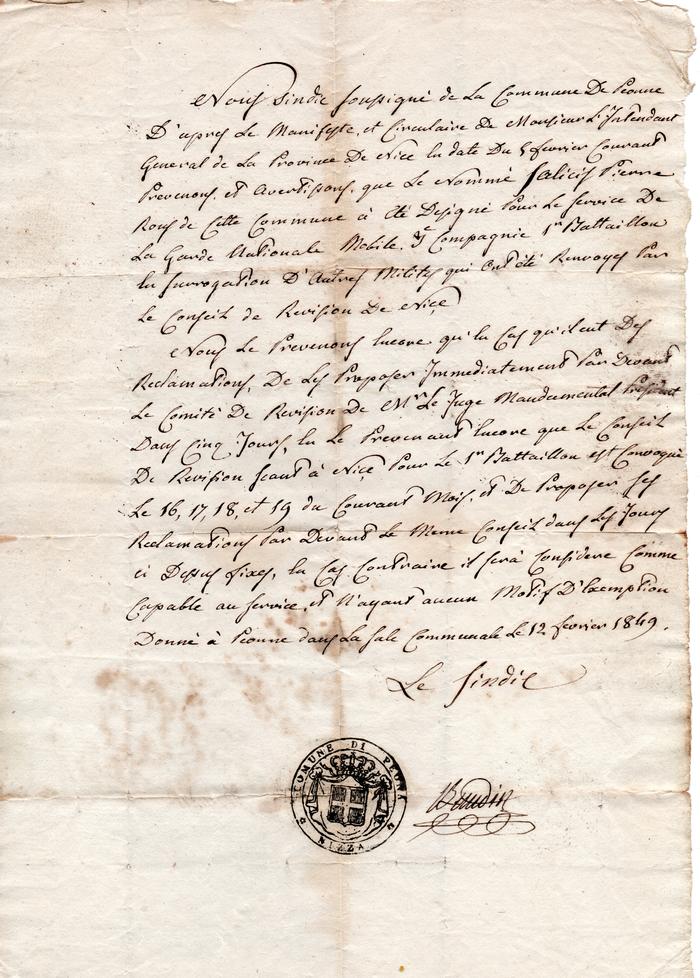 Nous Sindic soussigné de La Commune De Péonne
D'apres Le Manifeste, et Circulaire De Monsieur L'Intendant
General de La Province De Nice En date Du 8 fevrier Courant
Prevenons, et avertissons, que Le Nommé Salicis Pierre
Rous de Cette Commune à été Designé Pour Le Service De
La Garde Nationale Mobile, Compagnie 1r Battaillon
En Surrogation D'Autres Milites qui ont été Renvoyes Par
Le Conseil de Revision De Nice
Nous Le Prevenons Encore qu'En Cas qu'il eut Des
Reclamations, De Les Proposer Immediatement Par Devant
Le Comité De Revision De Mr Le Juge Mandamental President
Dans Cinq Jours, En Le Prevenant Encore que Le Conseil
De Revision Seant à Nice Pour Le 1r Battaillon est Convoqué
Le 16, 17, 18, et 19 du Courant Mois, et De Proposer Ses
Reclamations Par Devant Le Meme Conseil dans Les Jours
ci Dessus fixes, En Cas Contraire il serà Considere Comme
Capable au Service, et N'ayant aucun Motif D'Exemption
Donné à Péonne dans La Sale Communale Le 12 fevrier 1849.
Le Sindic
COMUNE DI PEONA
NIZZA